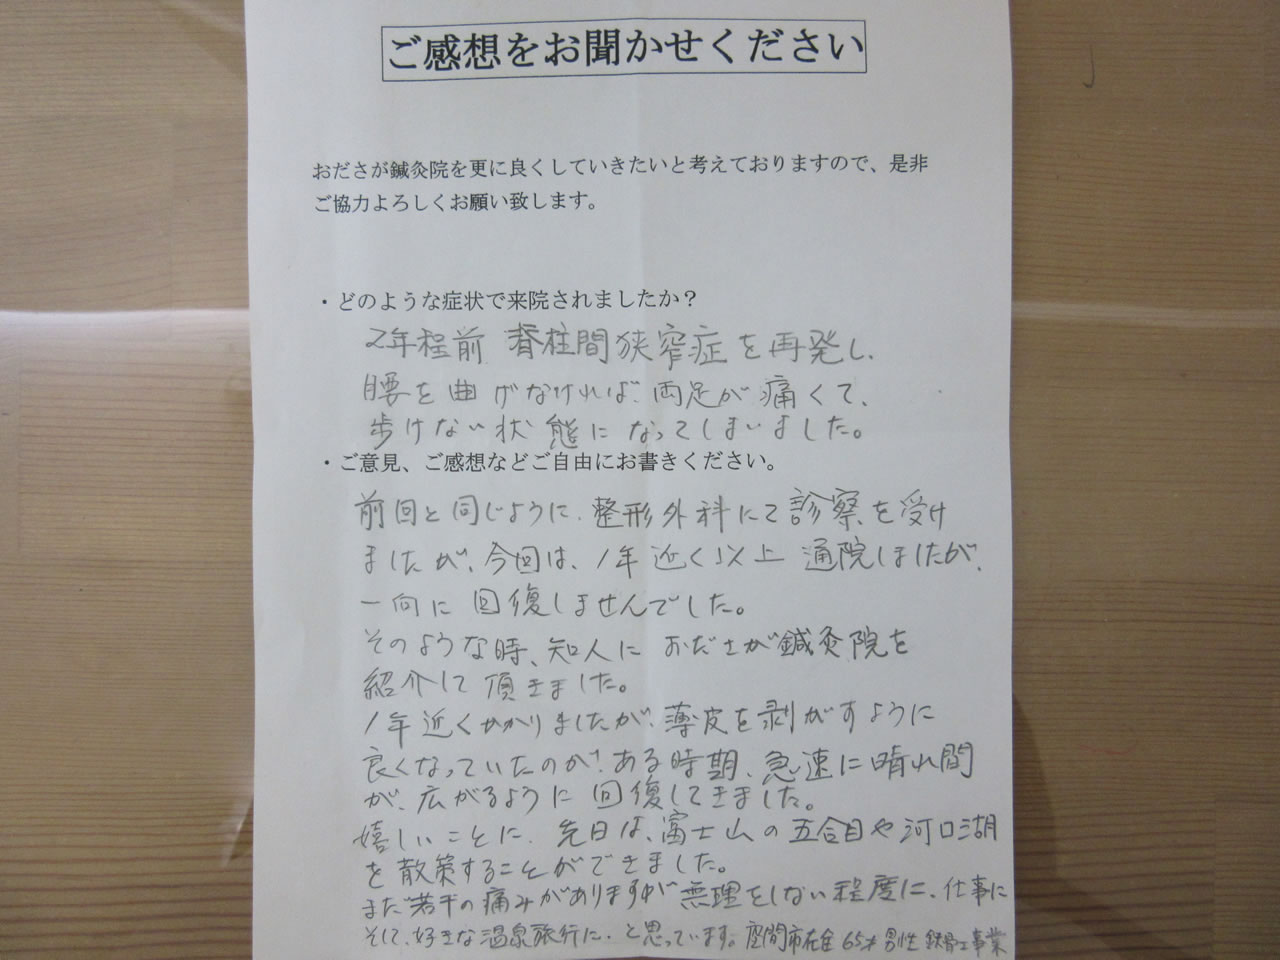 ご感想をお聞かせください
おださが鍼灸院を更に良くしていきたいと考えておりますので、是非
ご協力よろしくお願い致します。
・どのような症状で来院されましたか？
2年程前 脊柱間狭窄症を再発し、
腰を曲げなければ、両足が痛くて、
歩けない状態になってしまいました。
・ご意見、ご感想などご自由にお書きください。
前回と同じように、整形外科にて診察を受け
ましたが、今回は、1年近く以上 通院しましたが、
一向に回復しませんでした。
そのような時、知人に おださが鍼灸院を
紹介して頂きました。
1年近くかかりましたが、薄皮を剥がすように
良くなっていたのが、ある時期、急速に晴れ間
が、広がるように回復してきました。
嬉しいことに、先日は、富士山の五合目や河口湖
を散策することができました。
まだ若干の痛みがありますが無理をしない程度に、仕事に
そして、好きな温泉旅行に、と思っています。座間市在住 65才 男性 鉄骨工事業